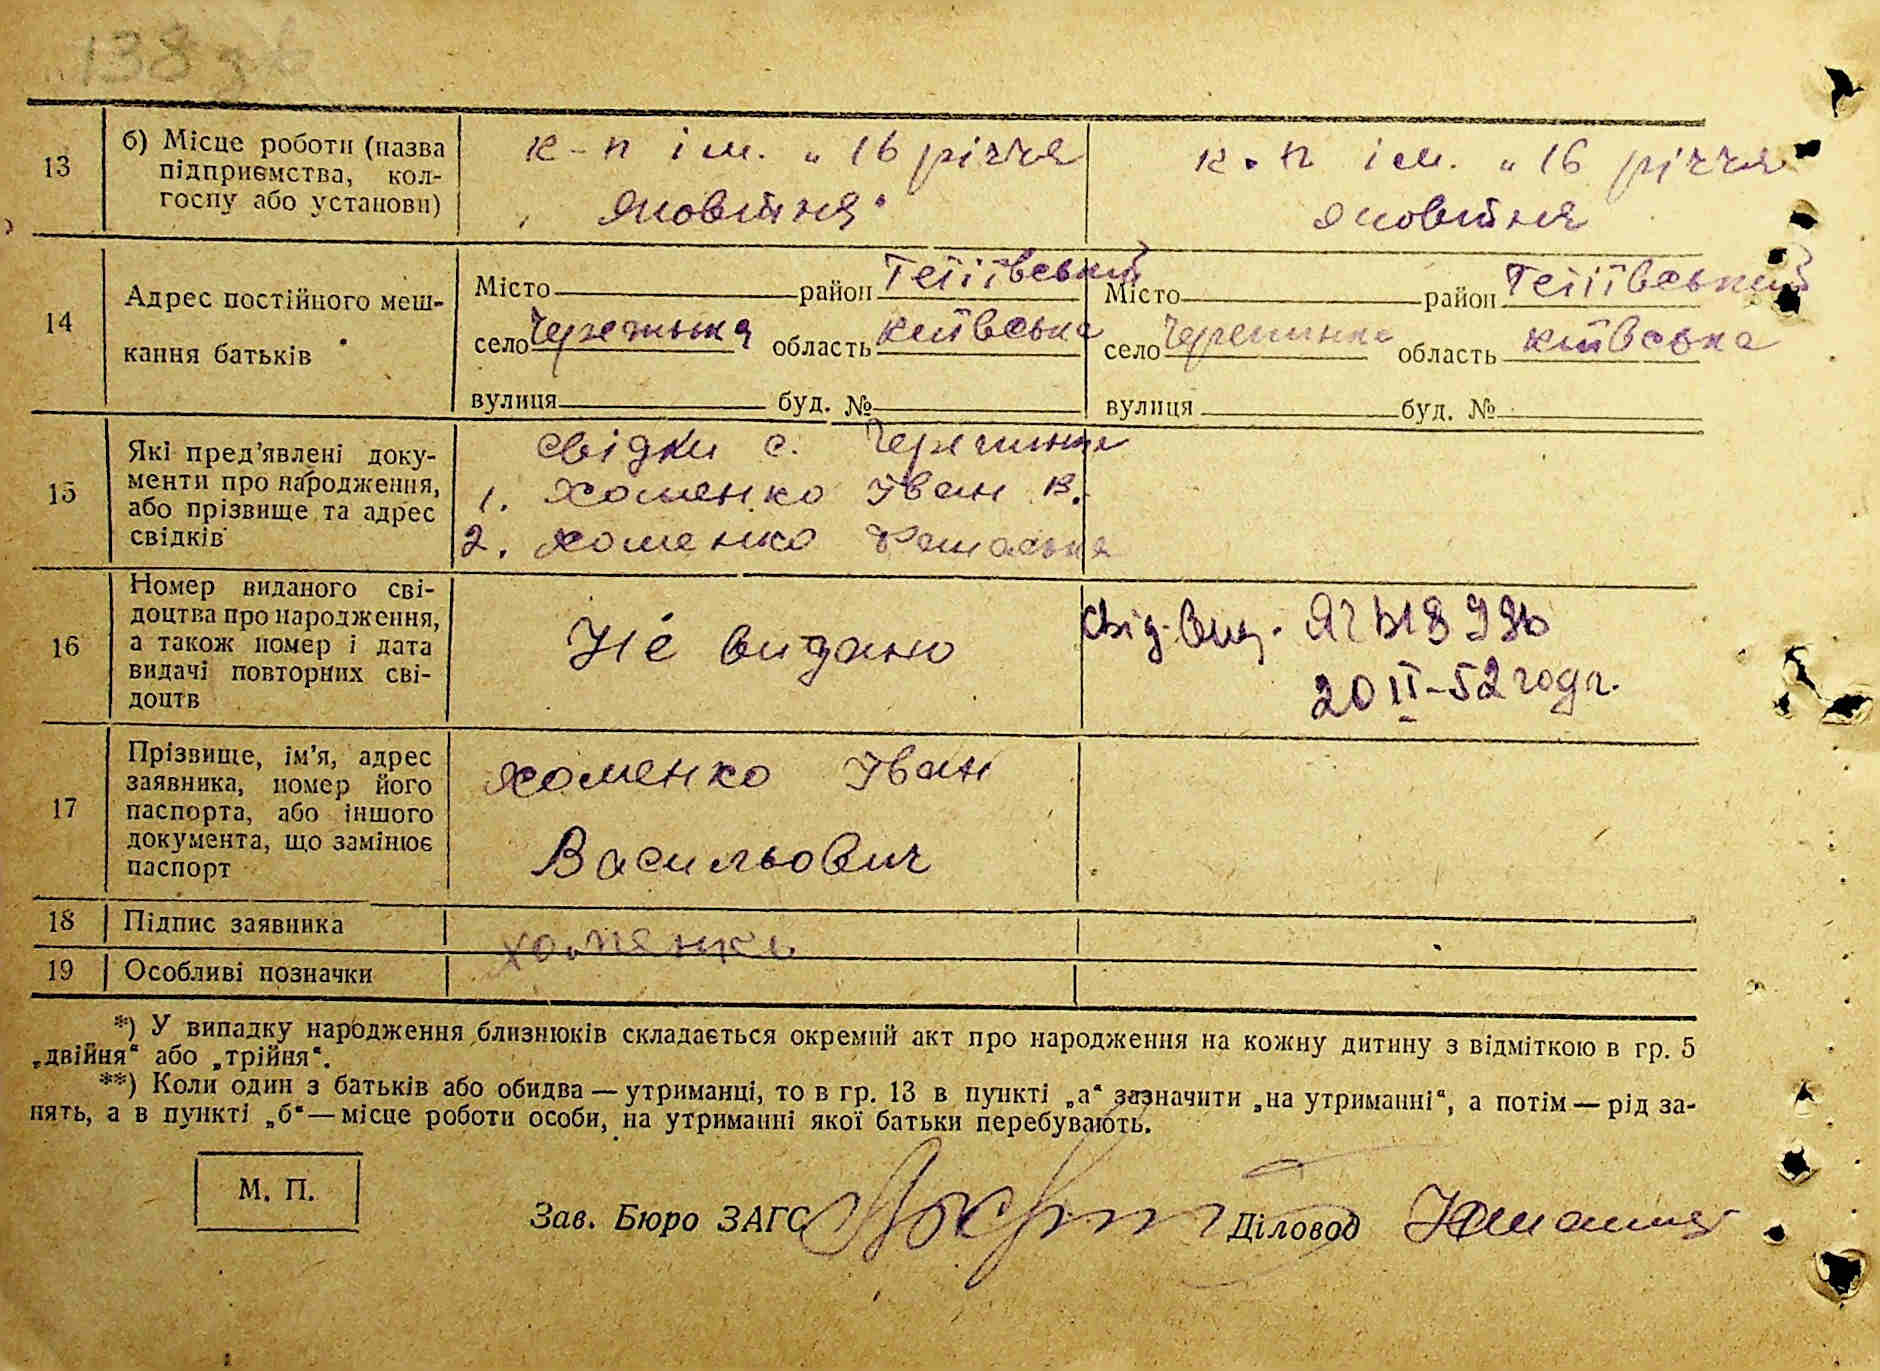 138 зв
13
б) Місце роботи (назва
підприємства, кол-
госпу або установи)
к-п ім. „16 річчя
Жовтня"
к-п ім. „16 річчя
Жовтня
14
Адрес постійного меш-
кання батьків
Місто район Тетіївський
село Черепинка область київська
вулиця буд. №
Місто район Тетіївський
село Черепинка область київська
вулиця буд. №
15
Які пред'явлені доку-
менти про народження,
або прізвище та адрес
свідків
свідки с. Черепинка
1. Хоменко Іван В.
2. Хоменко
16
Номер виданого сві-
доцтва про народження,
а також номер і дата
видачі повторних сві-
доцтв
Не видано
Свід. вид.
20 II-52 года.
17
Прізвище, ім'я, адрес
заявника, номер його
паспорта, або іншого
документа, що замінює
паспорт
Хоменко Іван
Васильович
18
Підпис заявника
Хоменко
19
Особливі позначки
*) У випадку народження близнюків складається окремий акт про народження на кожну дитину з відміткою в гр. 5
„двійня" або „трійня".
**) Коли один з батьків або обидва — утриманці, то в гр. 13 в пункті „а" зазначити „на утриманні", а потім — рід за-
нять, а в пункті „б" — місце роботи особи, на утриманні якої батьки перебувають.
М. П.
Зав. Бюро ЗАГС
Діловод